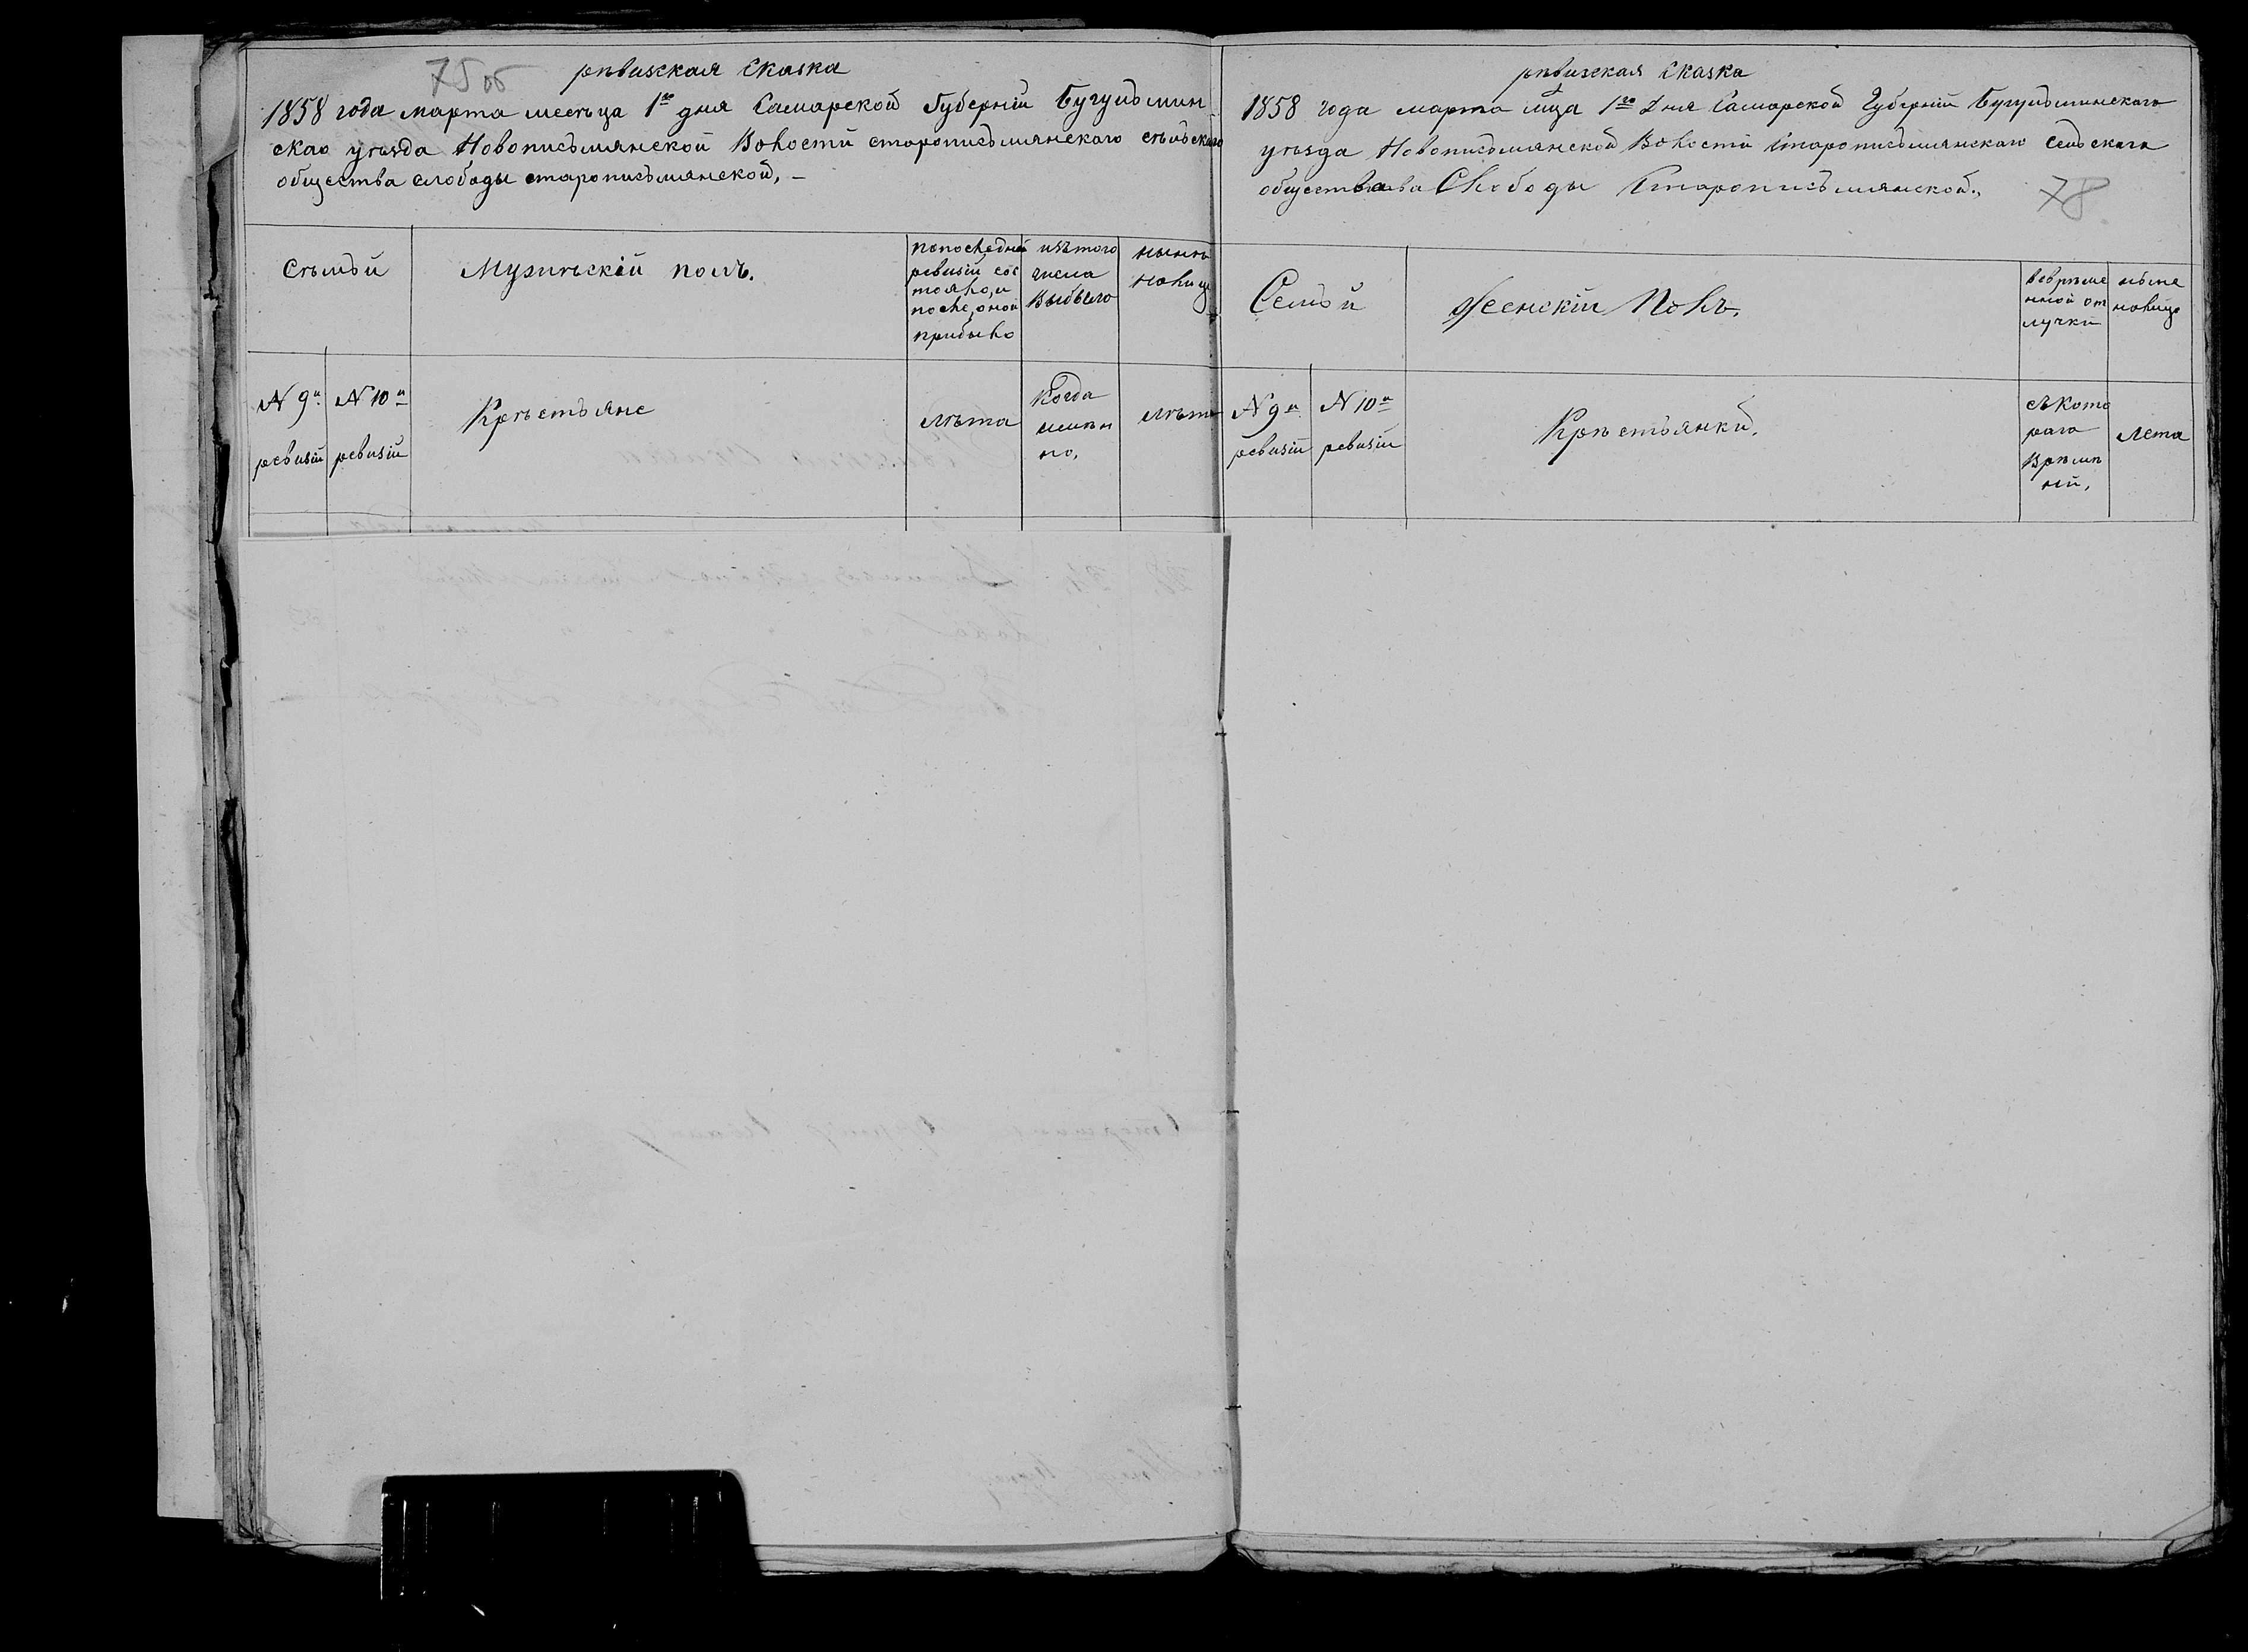 75 об
рѣвизская Сказка
1858 года марта месѣца 1го дня Самарской Губерній Бугульмин
скао уѣзда Новописьмянской Волости старописьмянскаго сѣльскаго
общества слободы старописьмянской, —
Сѣмьй
Мужиѣскій полъ.
попоследней
ревизій сос
тояло, и
после, оной
прибыло
изътого
числа
Выбыло
нынѣ
налиц
N 9й
ревизій
N 10й
ревизій
Крѣстьяне
лѣта
Когда
имѣн
но,
лѣта
рѣвизская Сказка
1858 года марта мца 1го Дня Самарской Губерній Бугульминскаго
уѣзда Новописьмянской Волости Старописьмянскаго сельскаго
Слободы Старописьмянской.,
78
Семьй
Жеенскій Полъ.
вврѣме
нной от
лучки
ныне
налицо
N 9й
ревизій
N 10й
ревизій
Крѣстьянкй.
съкото
рага
Врѣмѣ
ній,
лета